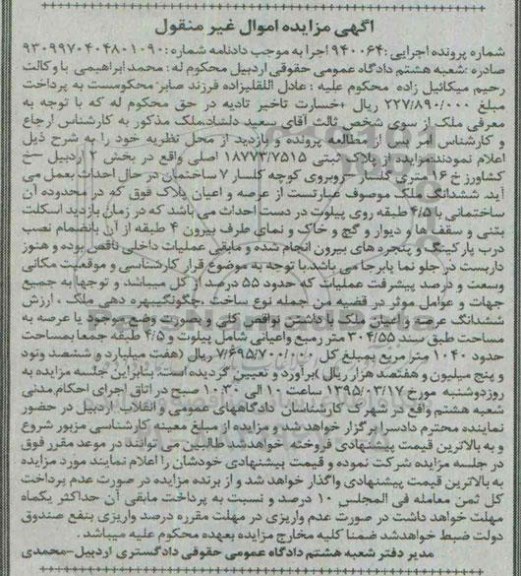 آگهی مزایده اموال غیر منقول
شماره پرونده اجرایی: ۹۴۰۰۶۴ اجرا به موجب دادنامه شماره: ۹۳۰۹۹۷۰۴۰۴۸۰۱۰۹۰
صادره :شعبه هشتم دادگاه عمومی حقوقی اردبیل محکوم له : محمد ابراهیمی با وکالت
رحیم میکائیل زاده محکوم علیه : عادل اللقلیزاده فرزند صابر محکومست به پرداخت
مبلغ ۲۲۷/۸۹۰/۰۰۰ ریال +خسارت تاخیر تادیه در حق محکوم له که با توجه به
معرفی ملک از سوی شخص ثالث آقای سعید دلشاد،ملک مذکور به کارشناس ارجاع
و کارشناس امر پس از مطالعه پرونده و بازدید از محل نظریه خود را به شرح ذیل
اعلام نمودند.مزایده از پلاک ثبتی ۱۸۷۷۳/۷۵۱۵ اصلی واقع در بخش ۲ اردبیل –خ
کشاورز خ ۱۶ متری گلسار –روبروی کوچه گلسار ۷ ساختمان در حال احداث بعمل می
آید. ششدانگ ملک موصوف عبارتست از عرصه و اعیان پلاک فوق که در محدوده آن
ساختمانی با ۴/۵ طبقه روی پیلوت در دست احداث می باشد که در زمان بازدید اسکلت
بتنی و سقف ها و دیوار و گچ و خاک و نمای طرف بیرون ۴ طبقه از آن بانضمام نصب
درب پارکینگ و پنجره های بیرون انجام شده و مابقی عملیات داخلی ناقص بوده و هنوز
داربست در جلو نما پابرجا می باشد.با توجه به موضوع قرار کارشناسی و موقعیت مکانی
وسعت و درصد پیشرفت عملیات که حدود ۵۵ درصد از کل میباشد و توجها به جمیع
جهات و عوامل موثر در قضیه من جمله نوع ساخت ،چگونگیبهره دهی ملک ، ارزش
ششدانگ عرصه و اعیان ملک با داشتن نواقص کلی و بصورت وضع موجود با عرصه به
مساحت طبق سند ۳۰۴/۵۵ متر مربع واعیانی شامل پیلوت و ۴/۵ طبقه جمعا بمساحت
حدود ۱۰۴۰ متر مربع بمبلغ کل ۷/۶۹۵/۷۰۰/۰۰۰ ریال (هفت میلیارد و ششصد ونود
و پنج میلیون و هفتصد هزار ریال )برآورد و تعیین گردیده است. بنابراین جلسه مزایده به
روزدوشنبه مورخ ۱۳۹۵/۰۳/۱۷ ساعت ۱۰ الی ۱۰:۳۰ صبح در اتاق اجرای احکام مدنی
شعبه هشتم واقع در شهرک کارشناسان دادگاههای عمومی و انقلاب اردبیل در حضور
نماینده محترم دادسرا برگزار خواهد شد و مزایده از مبلغ معینه کارشناسی مزبور شروع
و به بالاترین قیمت پیشنهادی فروخته خواهدشد طالبین می توانند در موعد مقرر فوق
در جلسه مزایده شرکت نموده و قیمت پیشنهادی خودشان را اعلام نمایند مورد مزایده
به بالاترین قیمت پیشنهادی واگذار خواهد شد و از برنده مزایده در صورت عدم پرداخت
کل ثمن معامله فی المجلس ۱۰ درصد و نسبت به پرداخت مابقی آن حداکثر یکماه
مهلت خواهد داشت در صورت عدم واریزی در مهلت مقرره درصد واریزی بنفع صندوق
دولت ضبط خواهدشد ضمنا کلیه مخارج مزایده بعهده محکوم علیه میباشد.
مدیر دفتر شعبه هشتم دادگاه عمومی حقوقی دادگستری اردبیل-محمدی